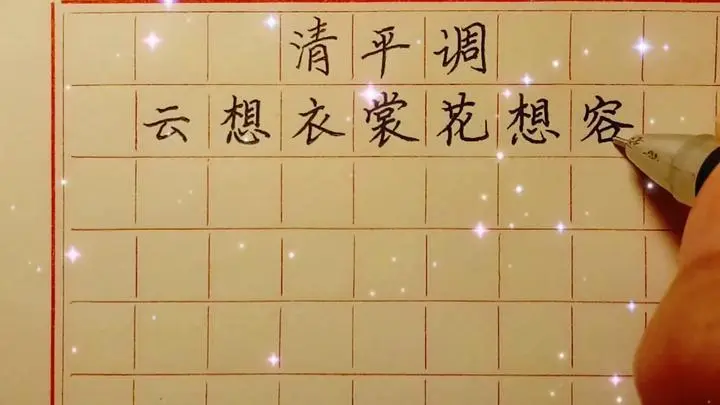 清平调
云想衣裳花想容